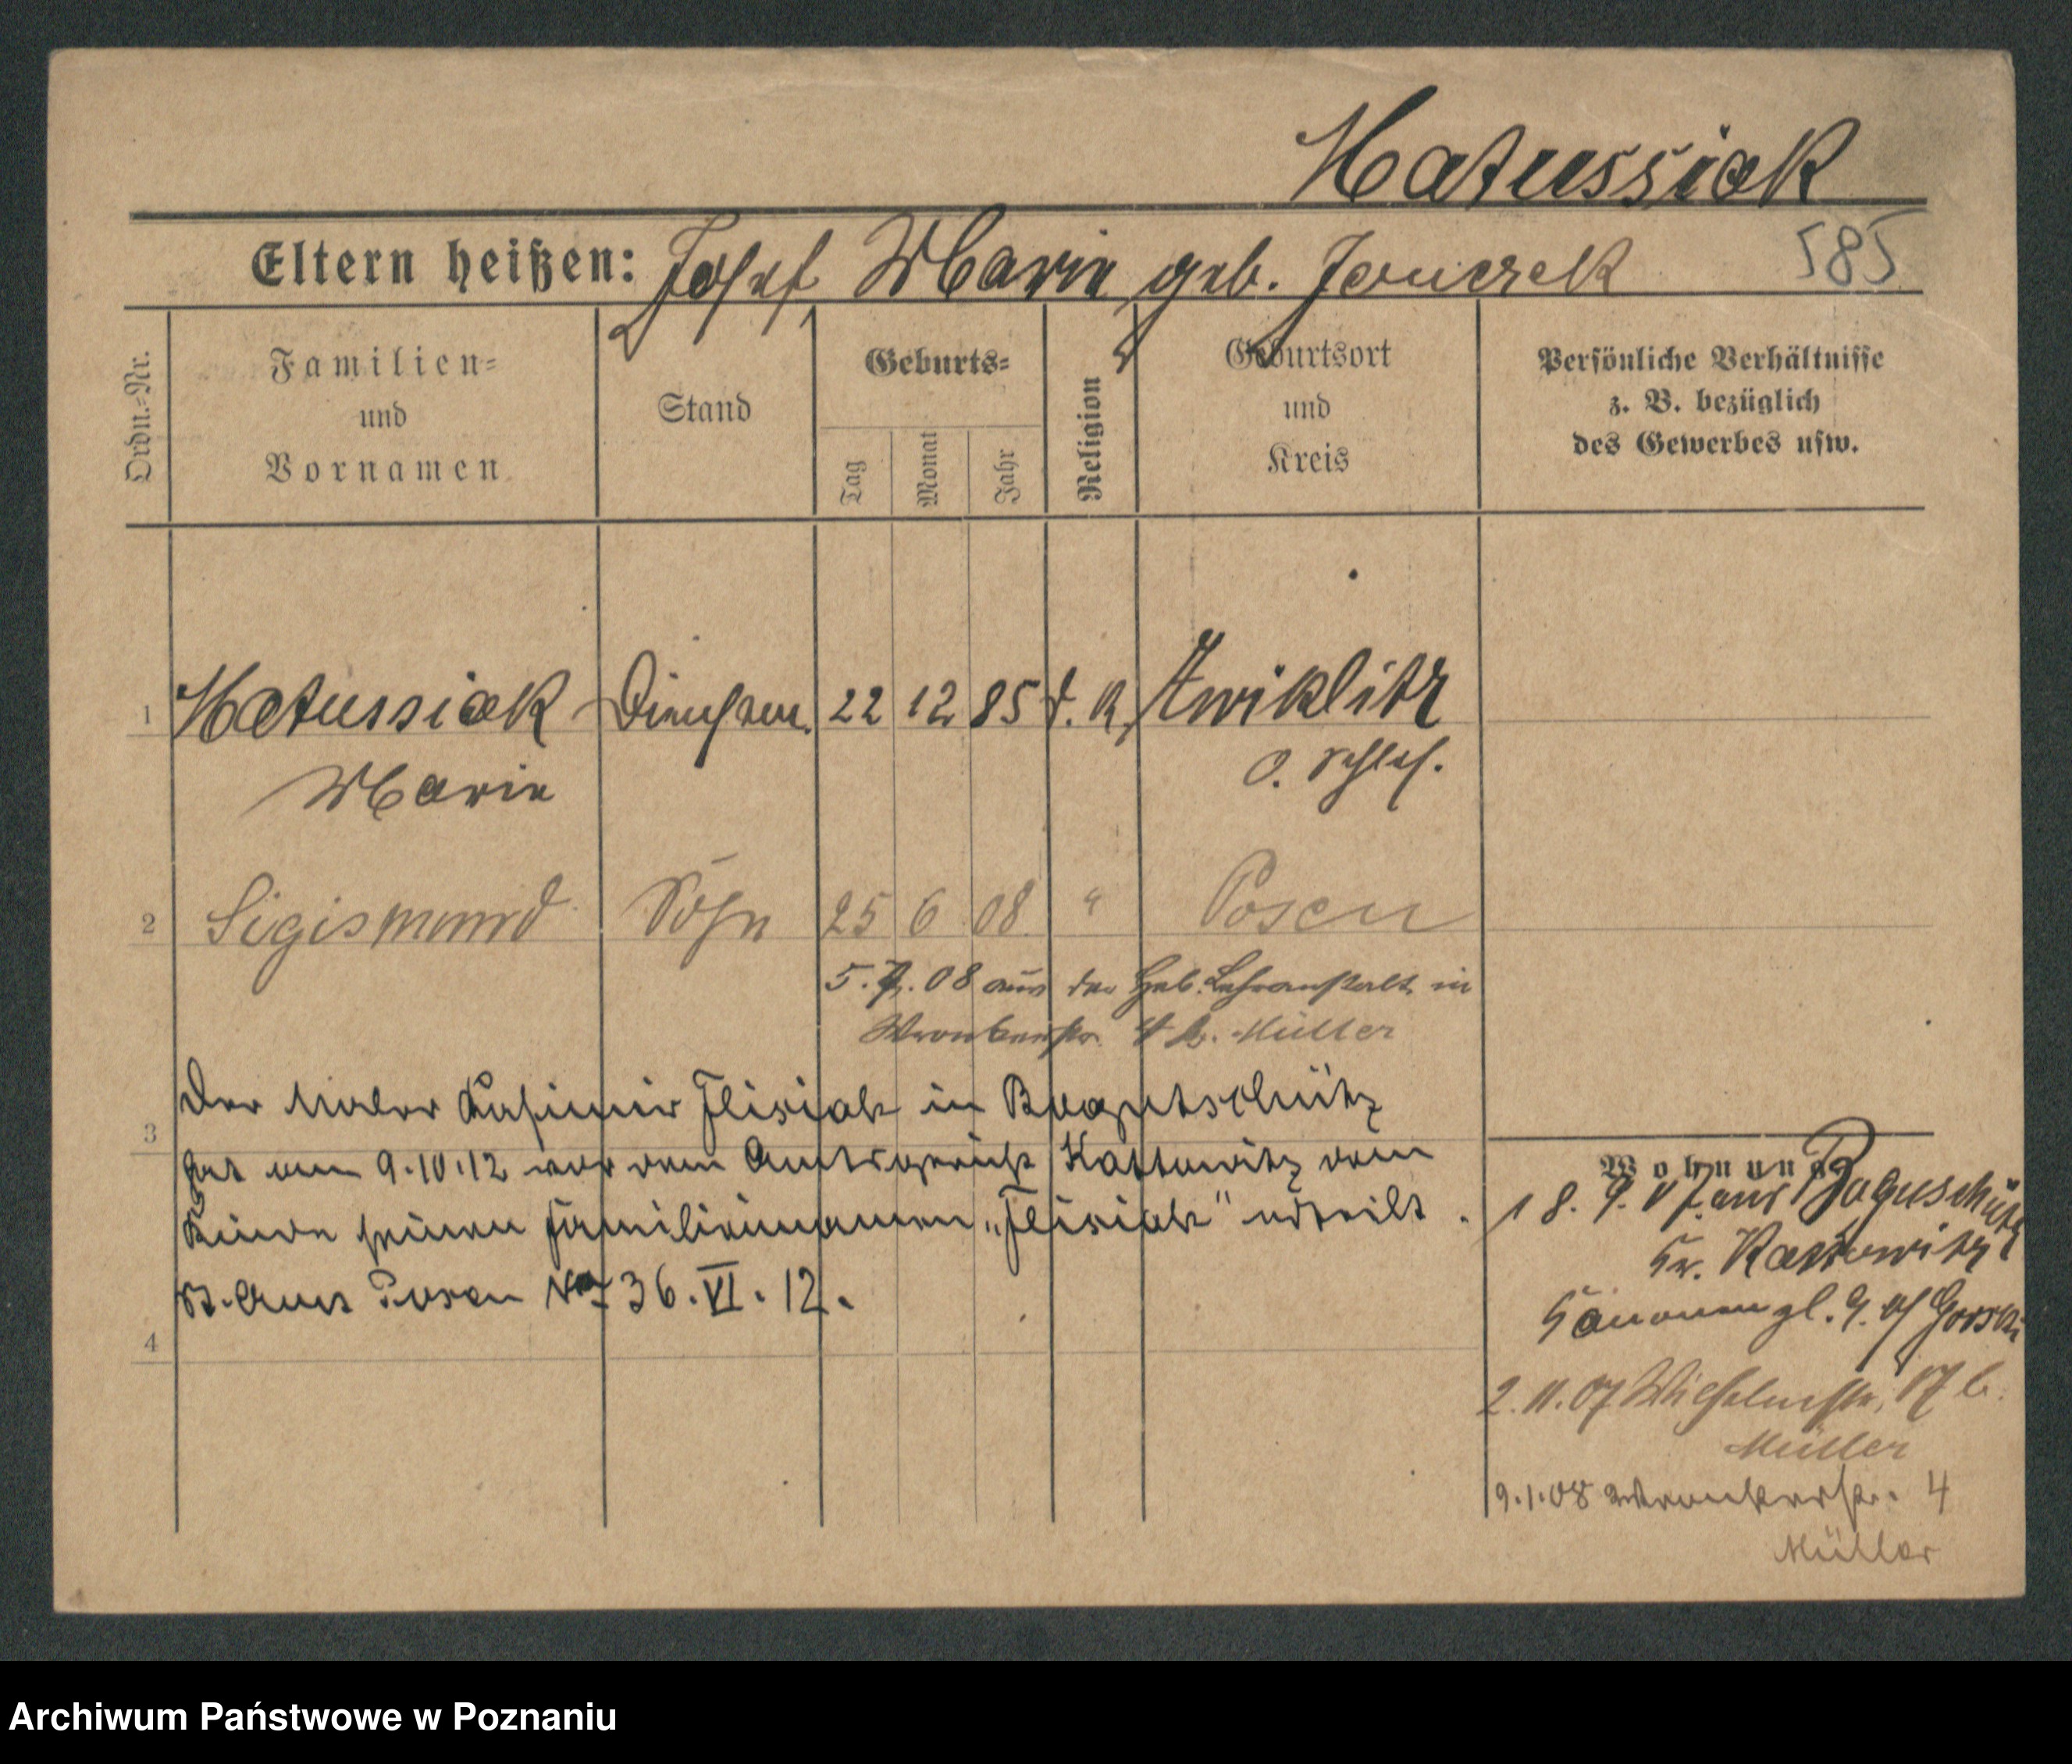 Matussiak
Eltern heißen: Josef Marie geb. Jonczek
585
Ordn.-Nr.
Familien-
und
Vornamen
Stand
Geburts-
Tag
Monat
Jahr
Religion
Geburtsort
und
Kreis
Persönliche Verhältnisse
z. B. bezüglich
des Gewerbes usw.
1 Matussiak 22 12 85 d. K. Zwiklitz
Marie O. Schles.
2 Sigismund Sohn 25 6 08 " Posen
5.7.08 aus der Heb. Lehranstalt in
Wronkerstr. 4 b. Müller
Der Maler Kasimir Flisiak in Bogutschütz
3
hat am 9.10.12 vor dem Amtsgericht Kattowitz dem
Kinde seinen Familiennamen "Flisiak" erteilt.
St. Amt Posen No 36. VI. 12.
4
Wohnung
18. 9. 07. aus Boguschütz
Kr. Kattowitz
Kanonenpl. 9. b/ Gorski
2.11.07 Wilhelmstr. 17 b.
Müller
9.1.08 Wronkerstr. 4
Müller
Archiwum Państwowe w Poznaniu